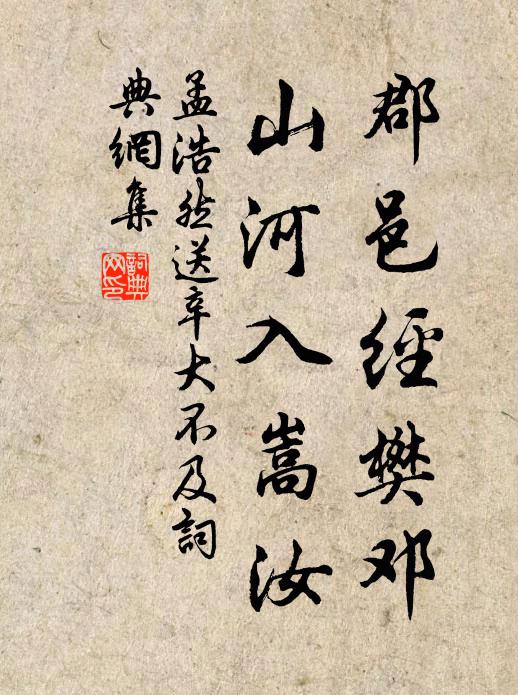 郡邑經樊邓
山河入嵩汝
孟浩然送辛大不及詞
典網集
詞典网印